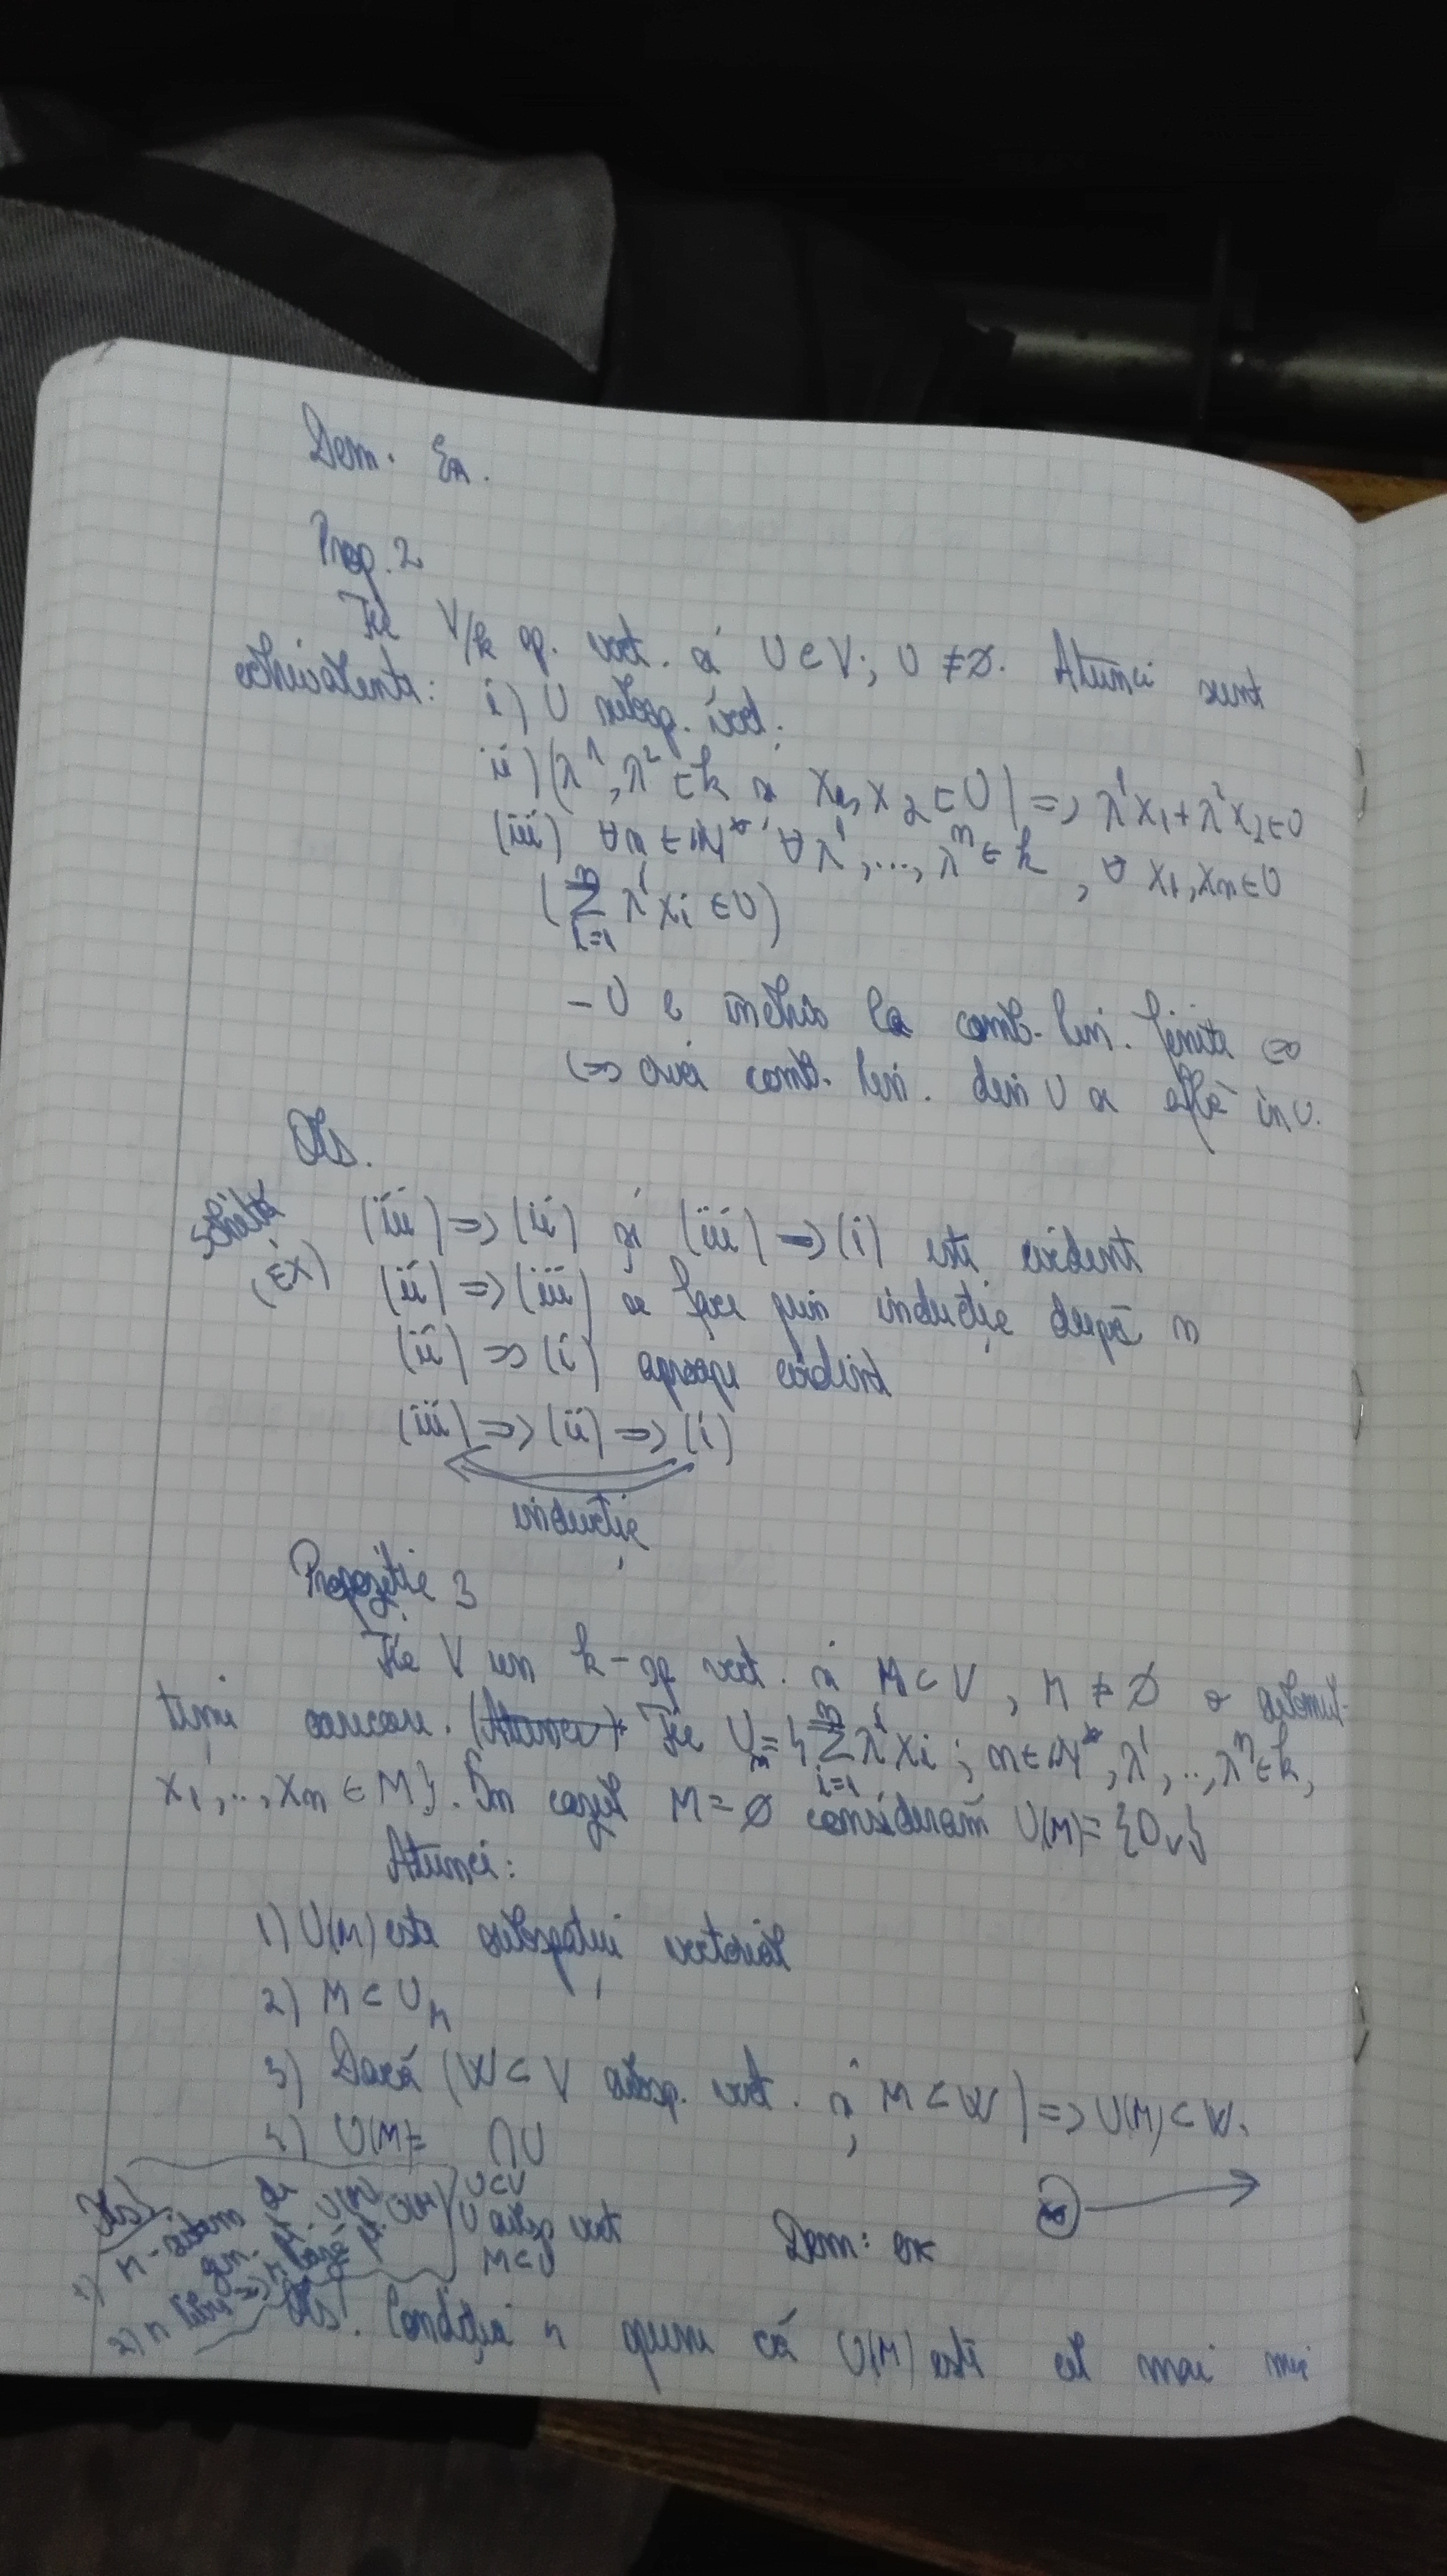 Dem. Ex.
Prop. 2
Fie V/k sp. vect. și U ⊂ V; U ≠ ∅. Atunci sunt
echivalente: i) U subsp. vect.
ii) (λ¹, λ² ∈ k și x₁, x₂ ∈ U) => λ¹x₁ + λ²x₂ ∈ U
(iii) ∀ n ∈ ℕ*, ∀ λ¹, ..., λⁿ ∈ k, ∀ x₁, xₙ ∈ U
(∑ⁿᵢ₌₁ λⁱxᵢ ∈ U)
- U e închis la comb. lin. finite <=>
<=> orice comb. lin. din U se află în U.
Obs.
Schiță (iii) => (ii) și (iii) => (i) este evident
(Ex) (ii) => (iii) se face prin inducție după n
(ii) => (i) aproape evident
(iii) => (ii) => (i)
inducție
Propoziție 3
Fie V un k-sp vect. și M ⊂ V, M ≠ ∅ o submul-
țime oarecare. (Atunci) Fie Uₘ = {∑ⁿᵢ₌₁ λⁱxᵢ ; n ∈ ℕ*, λ¹, .., λⁿ ∈ k,
x₁, .., xₙ ∈ M}. În cazul M = ∅ considerăm U(M) = {0ᵥ}
Atunci:
1) U(M) este subspațiu vectorial
2) M ⊂ Uₘ
3) Dacă (W ⊂ V subsp. vect. și M ⊂ W) => U(M) ⊂ W.
4) U(M) = ∩U
U⊂V
U subsp vect
M⊂U
Obs!
1) M - sistem de
gen. pt. U(M)
2) M liber => M bază pt. U(M)
Dem: ex
Obs! Condiția 4 spune că U(M) este cel mai mic